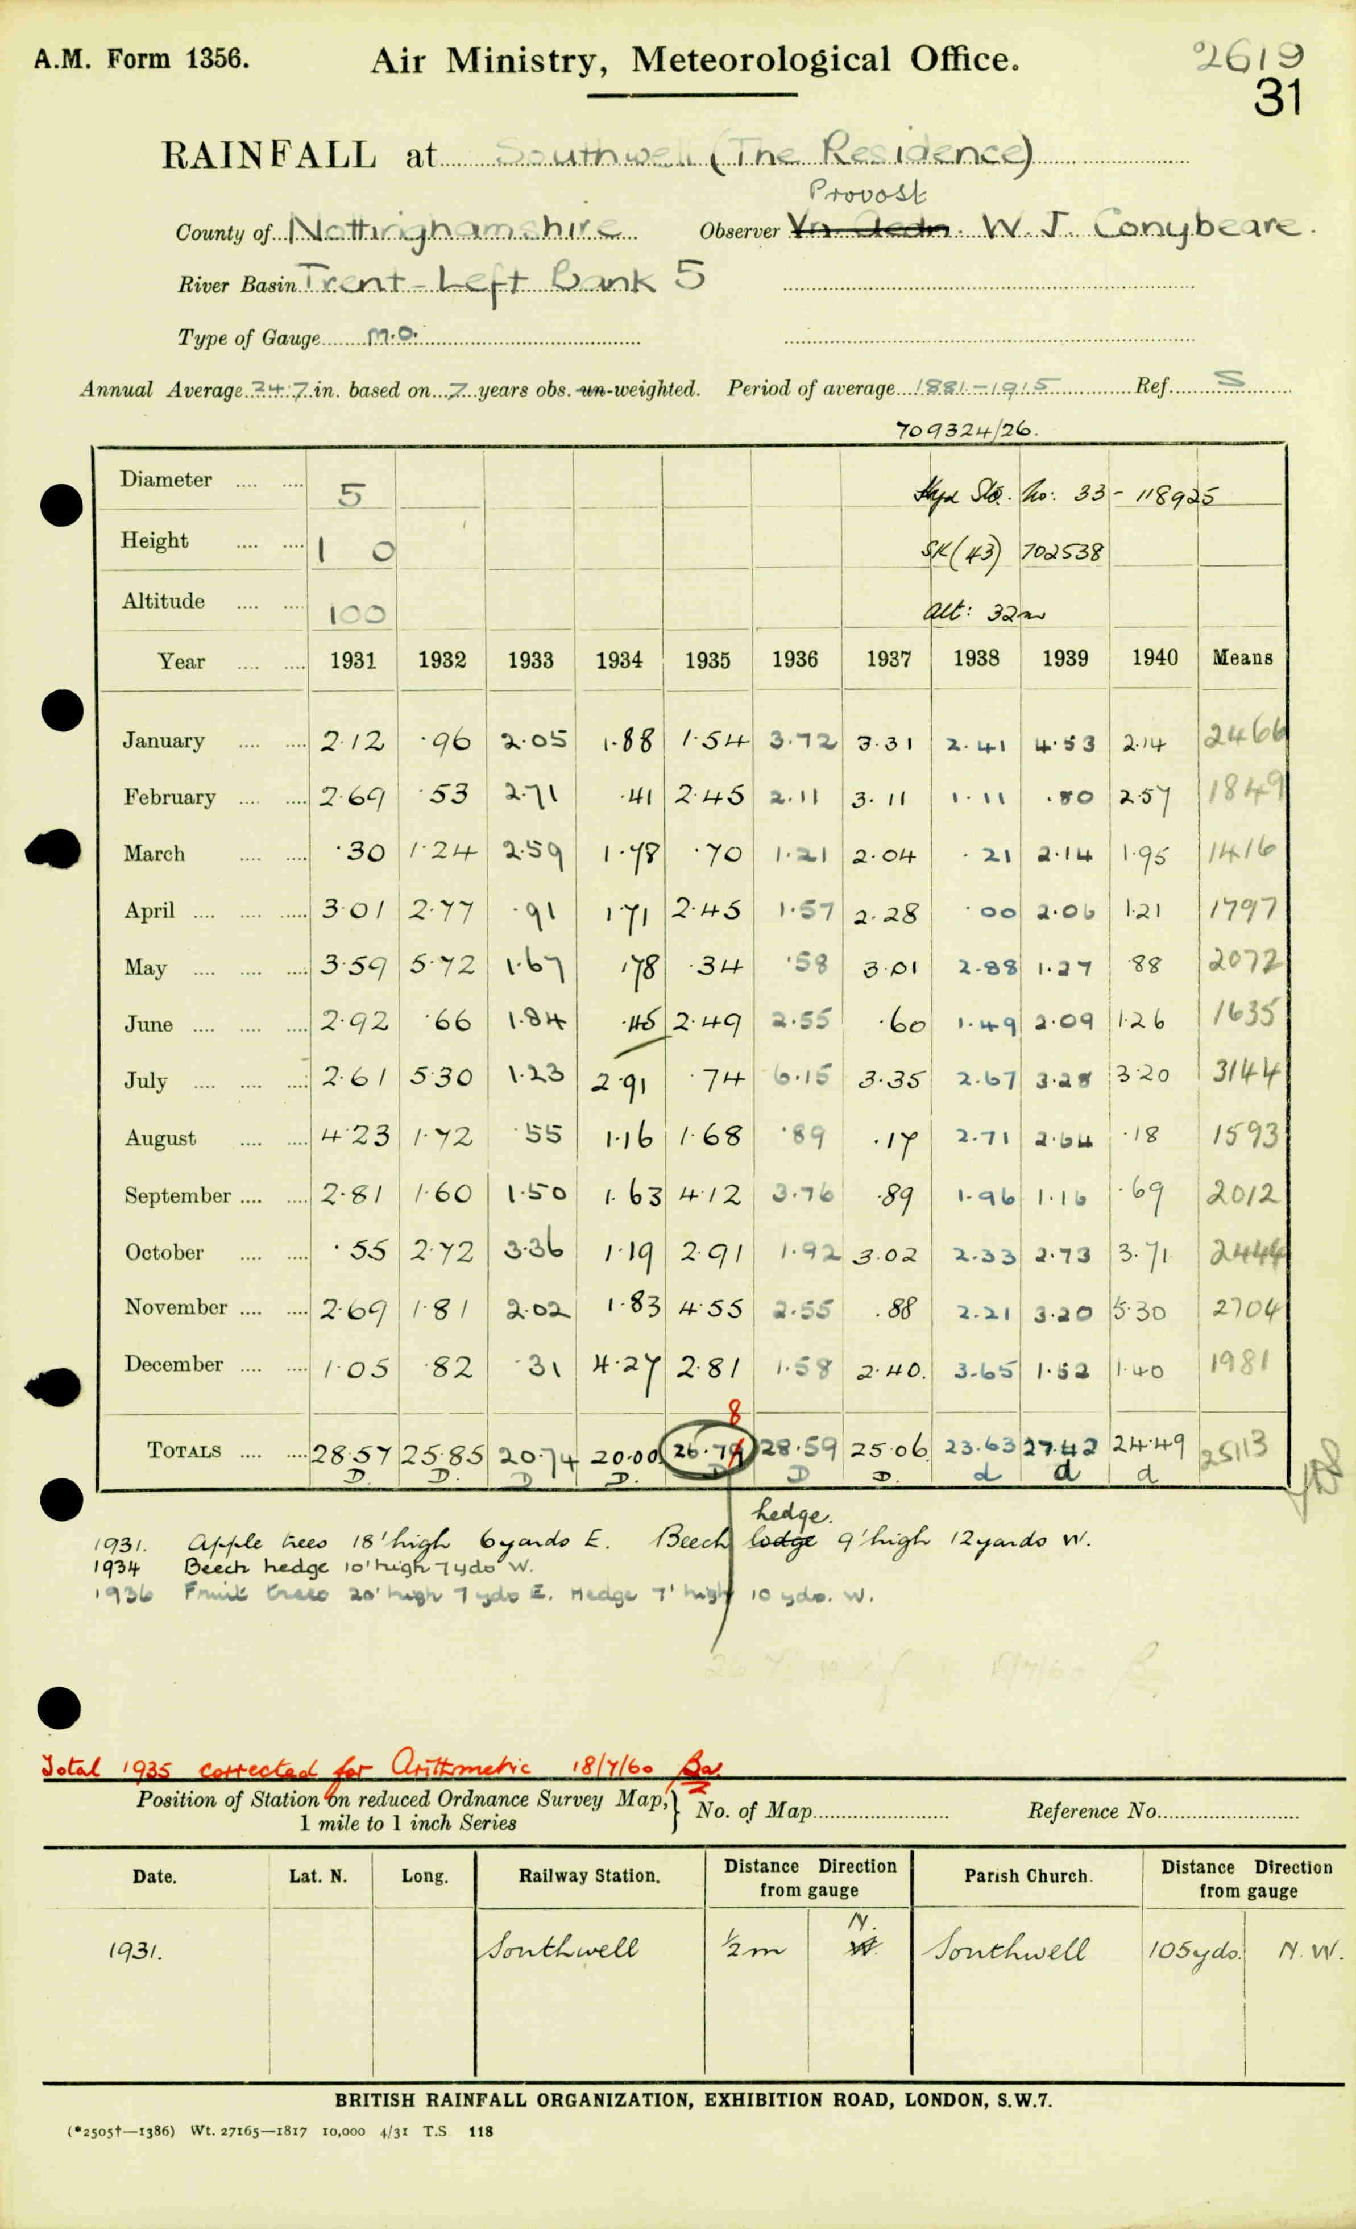 A.M. Form 1356.
Air Ministry, Meteorological Office.
2619
31
RAINFALL at Southwell (The Residence)
Provost
County of Nottinghamshire Observer Vn. Aedn. W. J. Conybeare.
River Basin Trent - Left Bank 5
Type of Gauge M.O.
Annual Average 24.7 in. based on 7 years obs. un-weighted. Period of average 1881-1915 Ref. S
709324/26.
Diameter .... .... 5 Hyd Sta. No: 33 - 118925
Height .... .... 1 0 SK (43) 702538
Altitude .... .... 100 Alt: 32m
Year .... .... 1931 1932 1933 1934 1935 1936 1937 1938 1939 1940 Means
January .... .... 2.12 .96 2.05 1.88 1.54 3.72 3.31 2.41 4.53 2.14 2466
February .... .... 2.69 .53 2.71 .41 2.45 2.11 3.11 1.11 .80 2.57 1849
March .... .... .30 1.24 2.59 1.78 .70 1.21 2.04 .21 2.14 1.95 1416
April .... .... .... 3.01 2.77 .91 1.71 2.45 1.57 2.28 .00 2.06 1.21 1797
May .... .... .... 3.59 5.72 1.67 .78 .34 .58 3.01 2.88 1.27 .88 2072
June .... .... .... 2.92 .66 1.84 .45 2.49 2.55 .60 1.49 2.09 1.26 1635
July .... .... .... 2.61 5.30 1.23 2.91 .74 6.15 3.35 2.67 3.28 3.20 3144
August .... .... 4.23 1.72 .55 1.16 1.68 .89 .17 2.71 2.64 .18 1593
September .... .... 2.81 1.60 1.50 1.63 4.12 3.76 .89 1.96 1.16 .69 2012
October .... .... .55 2.72 3.36 1.19 2.91 1.92 3.02 2.33 2.73 3.71 2444
November .... .... 2.69 1.81 2.02 1.83 4.55 2.55 .88 2.21 3.20 5.30 2704
December .... .... 1.05 .82 .31 4.27 2.81 1.58 2.40. 3.65 1.52 1.40 1981
8
TOTALS .... .... 28.57 25.85 20.74 20.00 26.79 28.59 25.06 23.63 27.42 24.49 25113
D. D. D D. D D D. d d d
hedge.
1931. Apple trees 18' high 6 yards E. Beech lodge 9' high 12 yards W.
1934 Beech hedge 10' high 7 yds W.
1936 Fruit trees 20' high 7 yds E. Hedge 7' high 10 yds. W.
Total 1935 corrected for Arithmetic 18/7/60 Ba
Position of Station on reduced Ordnance Survey Map, } No. of Map Reference No.
1 mile to 1 inch Series
Date. Lat. N. Long. Railway Station. Distance Direction from gauge Parish Church. Distance Direction from gauge
N.
1931. Southwell ½ m W. Southwell 105 yds. N. W.
BRITISH RAINFALL ORGANIZATION, EXHIBITION ROAD, LONDON, S.W.7.
(*2505†—1386) Wt. 27165—1817 10,000 4/31 T.S 118